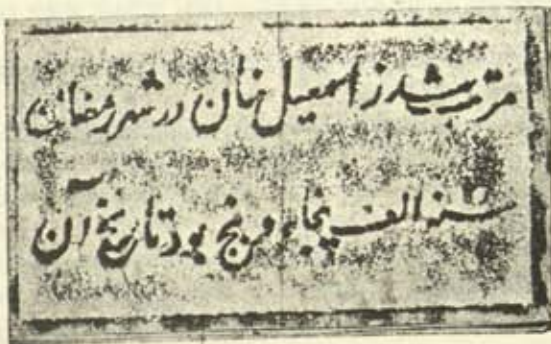 مرتب شد ز اسمعیل خان در شهر رمضان
سنه الف پنجاه و پنج بود تاریخ آن